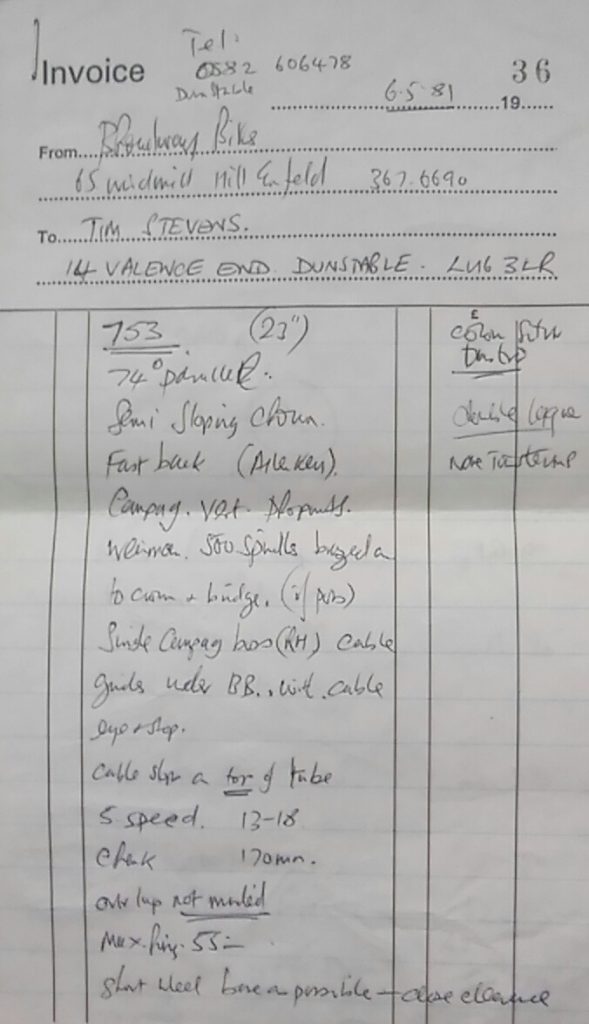 Tel:
Invoice 0582 606478 36
Dunstable
6.5.81 19
From Broadway Bikes
65 windmill Hill Enfield 367.6690
To TIM STEVENS.
14 VALENCE END. DUNSTABLE. LU6 3LR
753 (23") £
colour Silver
74° parallel.
Semi Sloping Crown. double
Fast back (Allen key).
Campag. vert. Dropouts.
Weinman. 500 spindles brazed on
to crown + bridge. (if poss)
Single Campag boss (RH) cable
guides under BB., with cable
eye + stop.
Cable stop on top of tube
5 speed. 13-18
Crank 170mm.
overlap not minded
Max. ring. 55
short wheel base as possible - close clearance